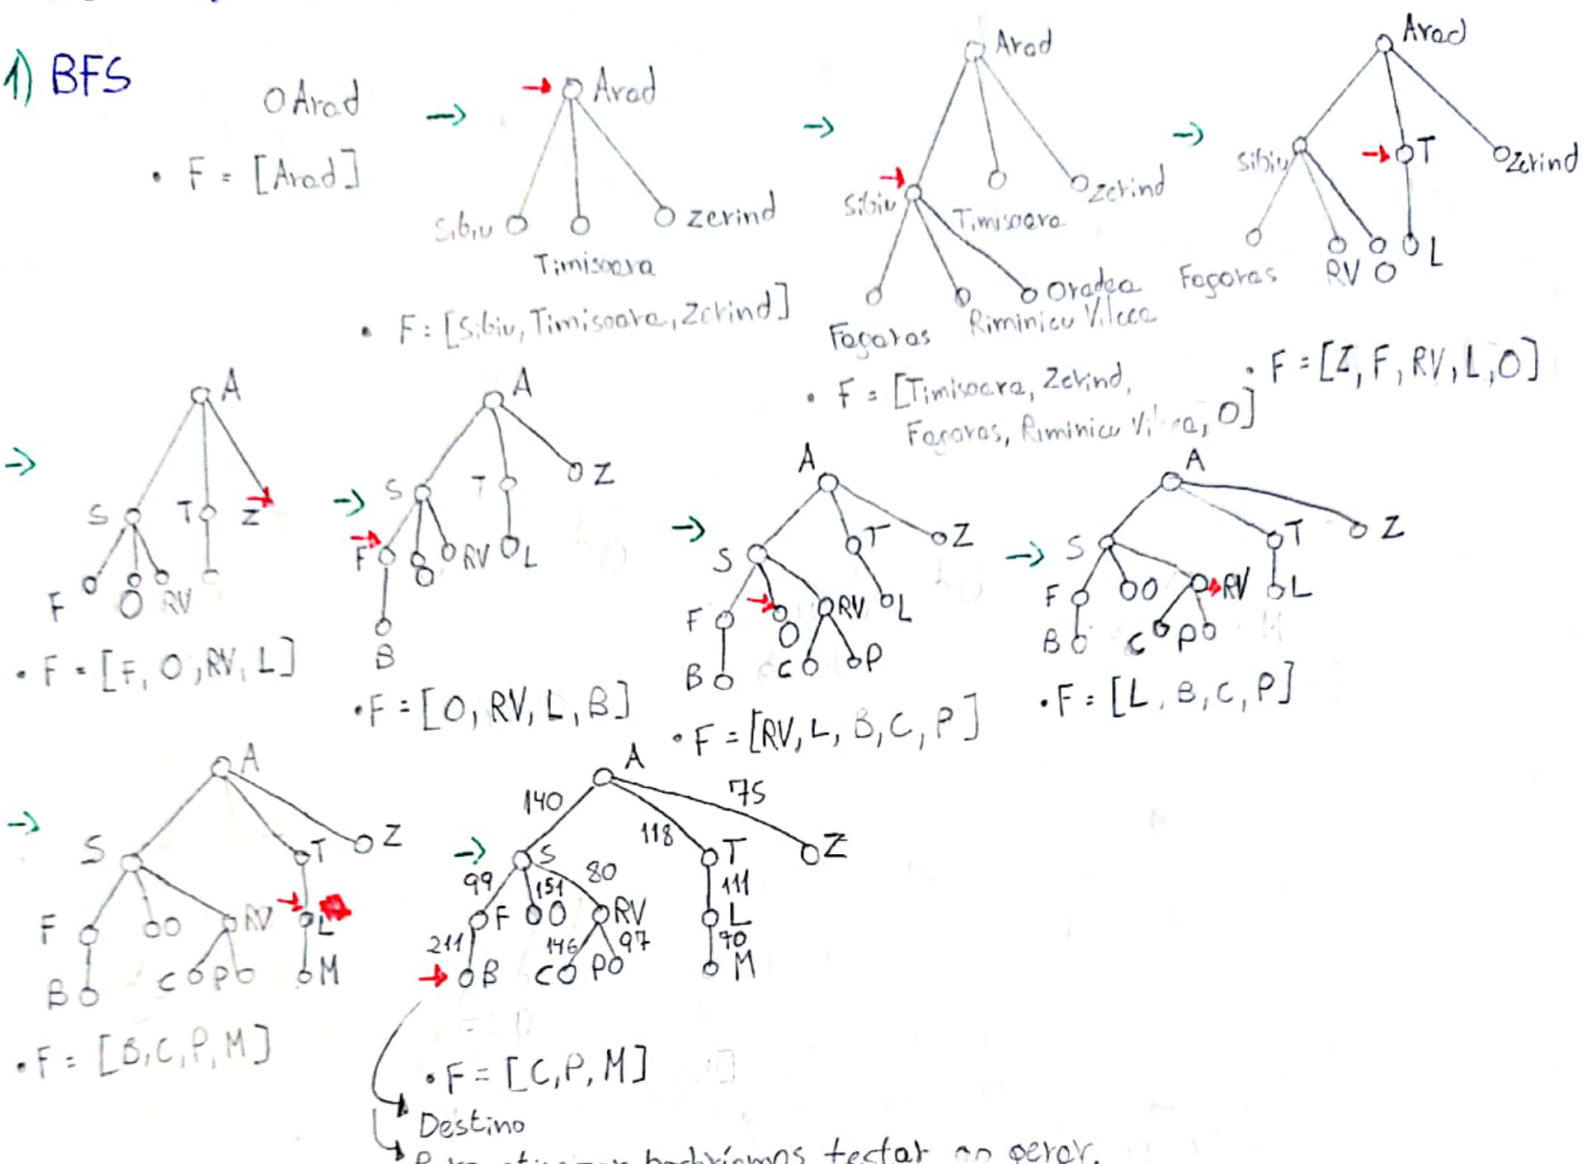 1) BFS
O Arad
• F = [Arad]
→ Arad
Sibiu
Timisoara
Zerind
• F = [Sibiu, Timisoara, Zerind]
→ Arad
Sibiu
Timisoara
Zerind
Fagaras
Riminicu Vilcea
Oradea
• F = [Timisoara, Zerind,
Fagaras, Riminicu Vilcea, O]
→ Arad
Sibiu
T
Zerind
Fagoras
RV
O
L
• F = [Z, F, RV, L, O]
→ A
S T Z
F O RV
• F = [F, O, RV, L]
→ A
S T Z
F O RV L
B
• F = [O, RV, L, B]
→ A
S T Z
F O RV L
B C P
• F = [RV, L, B, C, P]
→ A
S T Z
F O RV L
B C P M
• F = [L, B, C, P]
→ A
S T Z
F O RV L
B C P M
• F = [B, C, P, M]
→ A
140 118 75
S T Z
99 151 80 111
F O RV L
211 146 97 70
B C P M
• F = [C, P, M]
Destino
testar ao gerar.